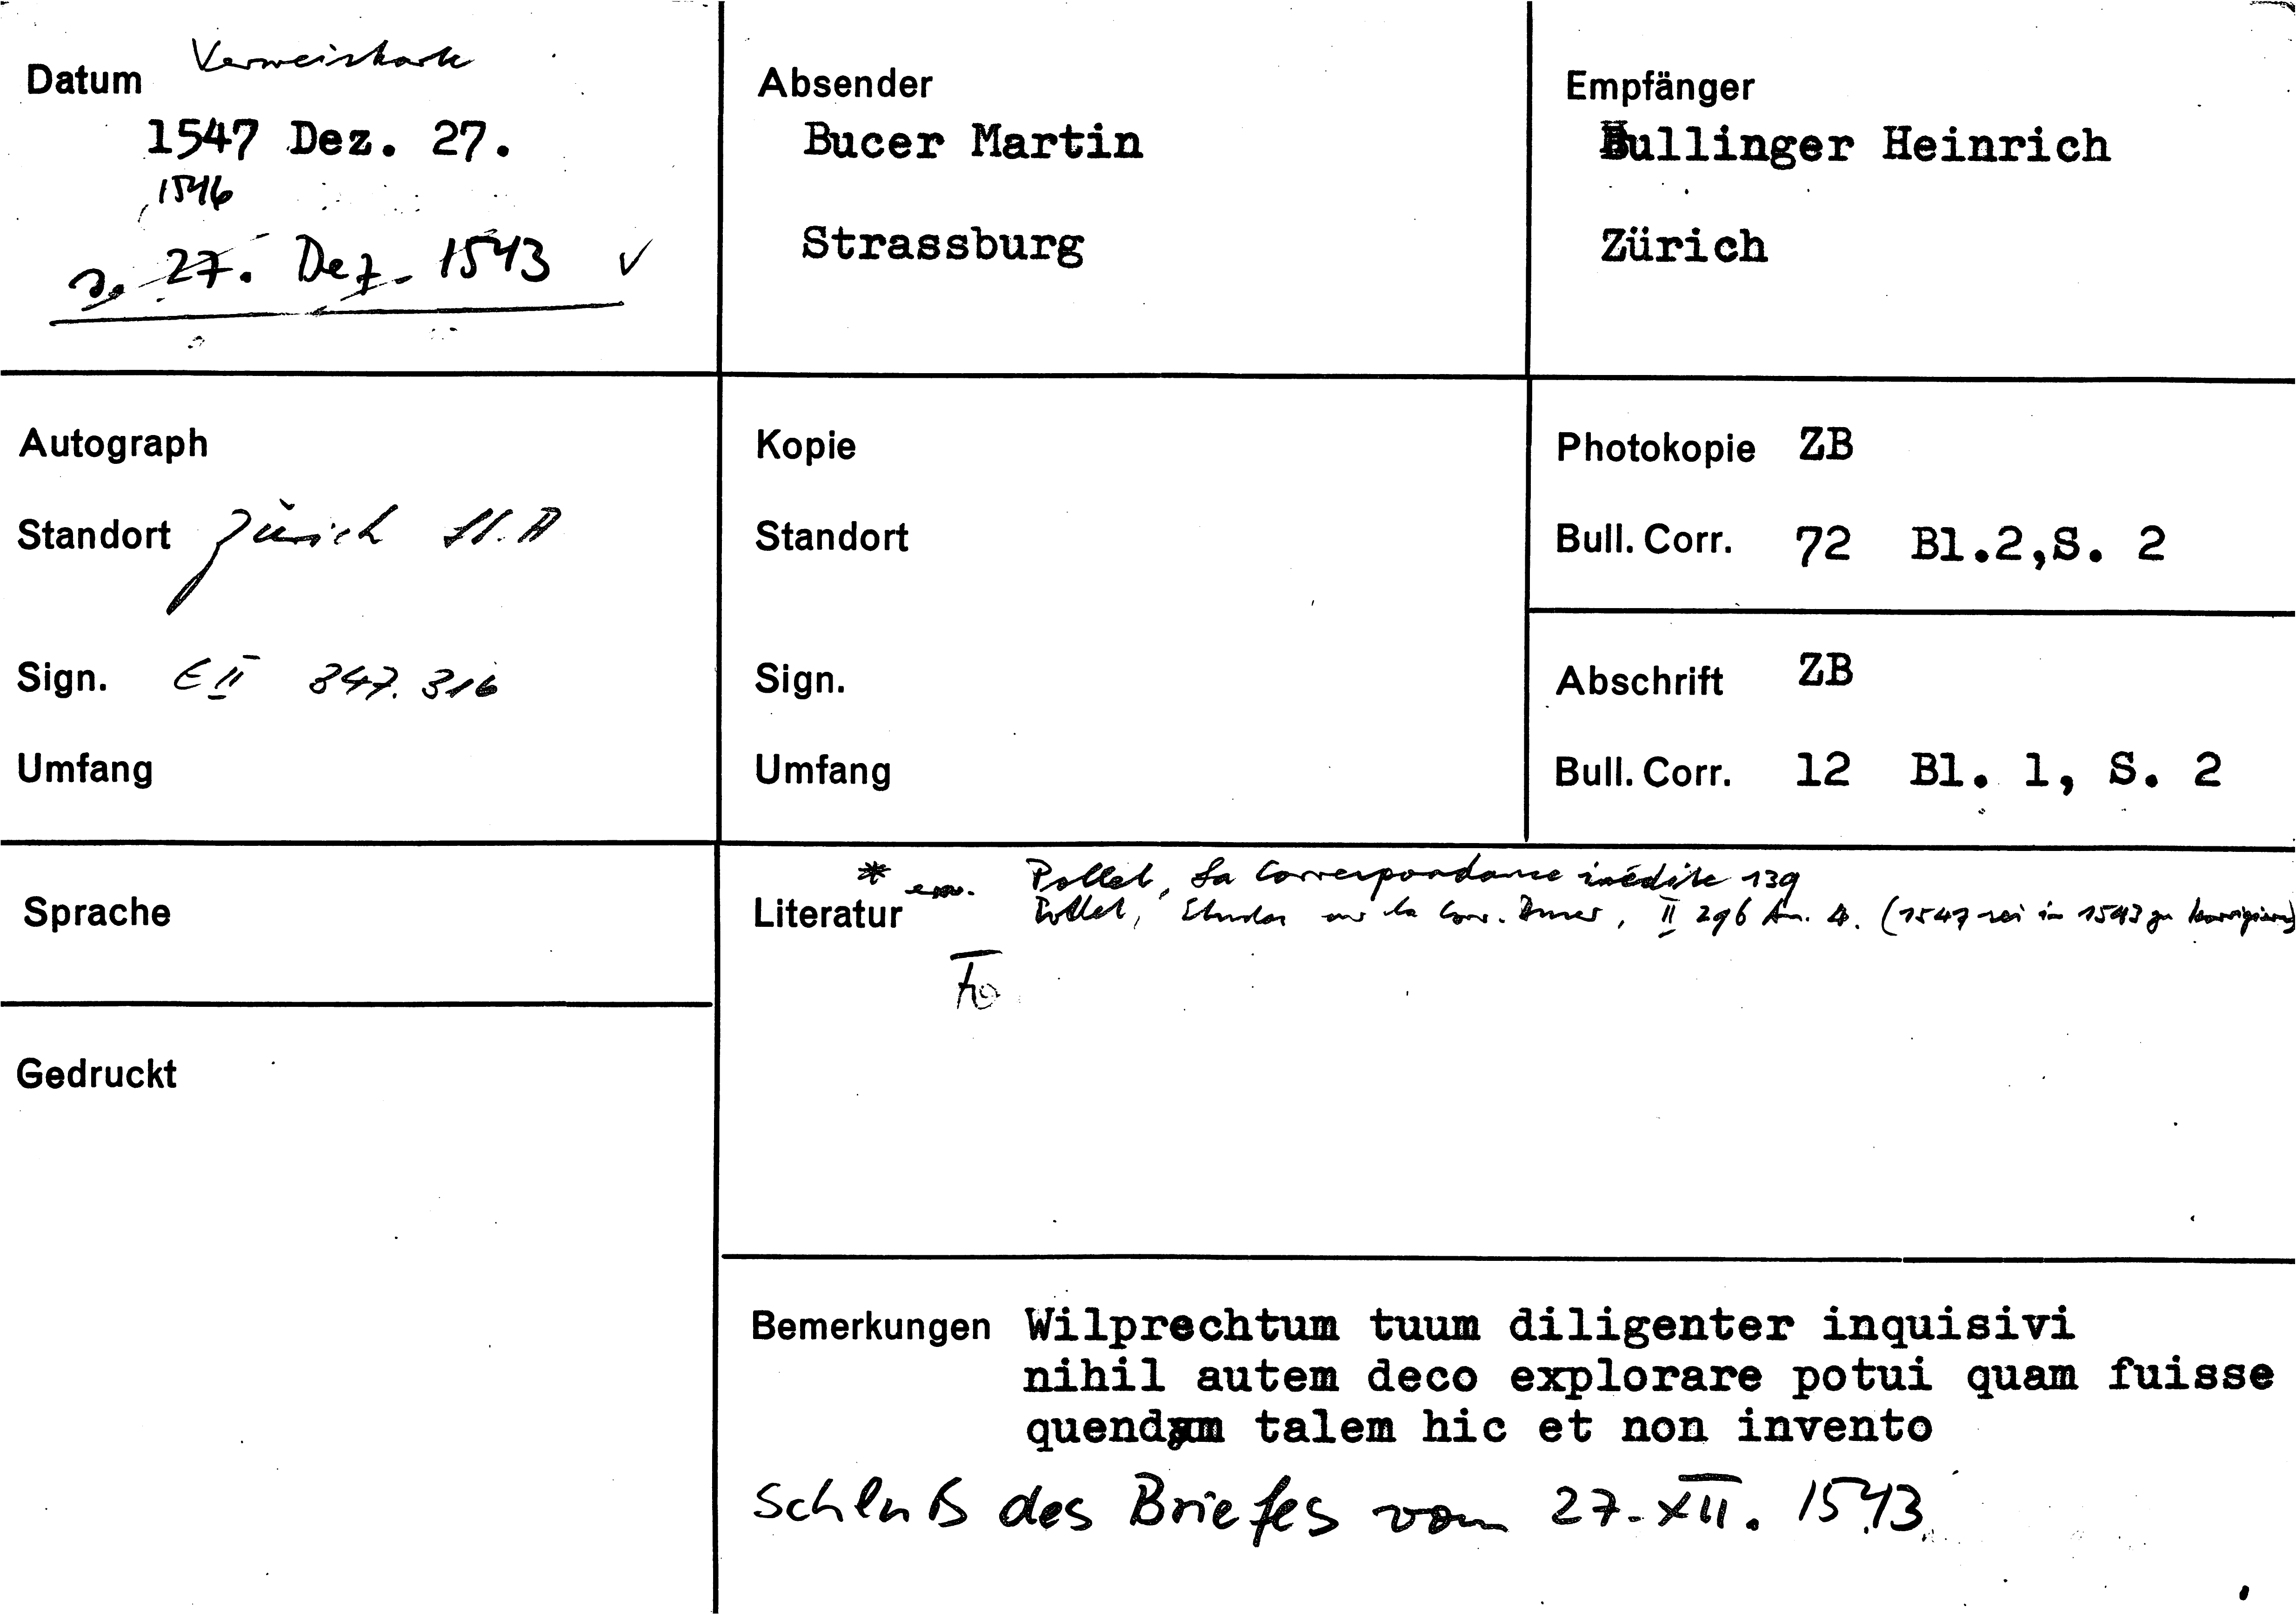 Datum Verweiskarte
1547 Dez. 27.
1546
s. 27. Dez. 1543 ✓
Absender
Bucer Martin
Strassburg
Empfänger
Bullinger Heinrich
Zürich
Autograph
Standort Zürich St.A
Sign. E II 347. 316
Umfang
Kopie
Standort
Sign.
Umfang
Photokopie ZB
Bull. Corr. 72 Bl.2,S. 2
Abschrift ZB
Bull. Corr. 12 Bl. 1, S. 2
Sprache
Gedruckt
* Pollet, La Correspondance inédite 139
Literatur Pollet, Etudes sur la Corr. II 296 An. 4. (1547 sei in 1543 zu korrigieren)
Bemerkungen Wilprechtum tuum diligenter inquisivi
nihil autem deco explorare potui quam fuisse
quendam talem hic et non invento
Schluß des Briefes vom 27. XII. 1543